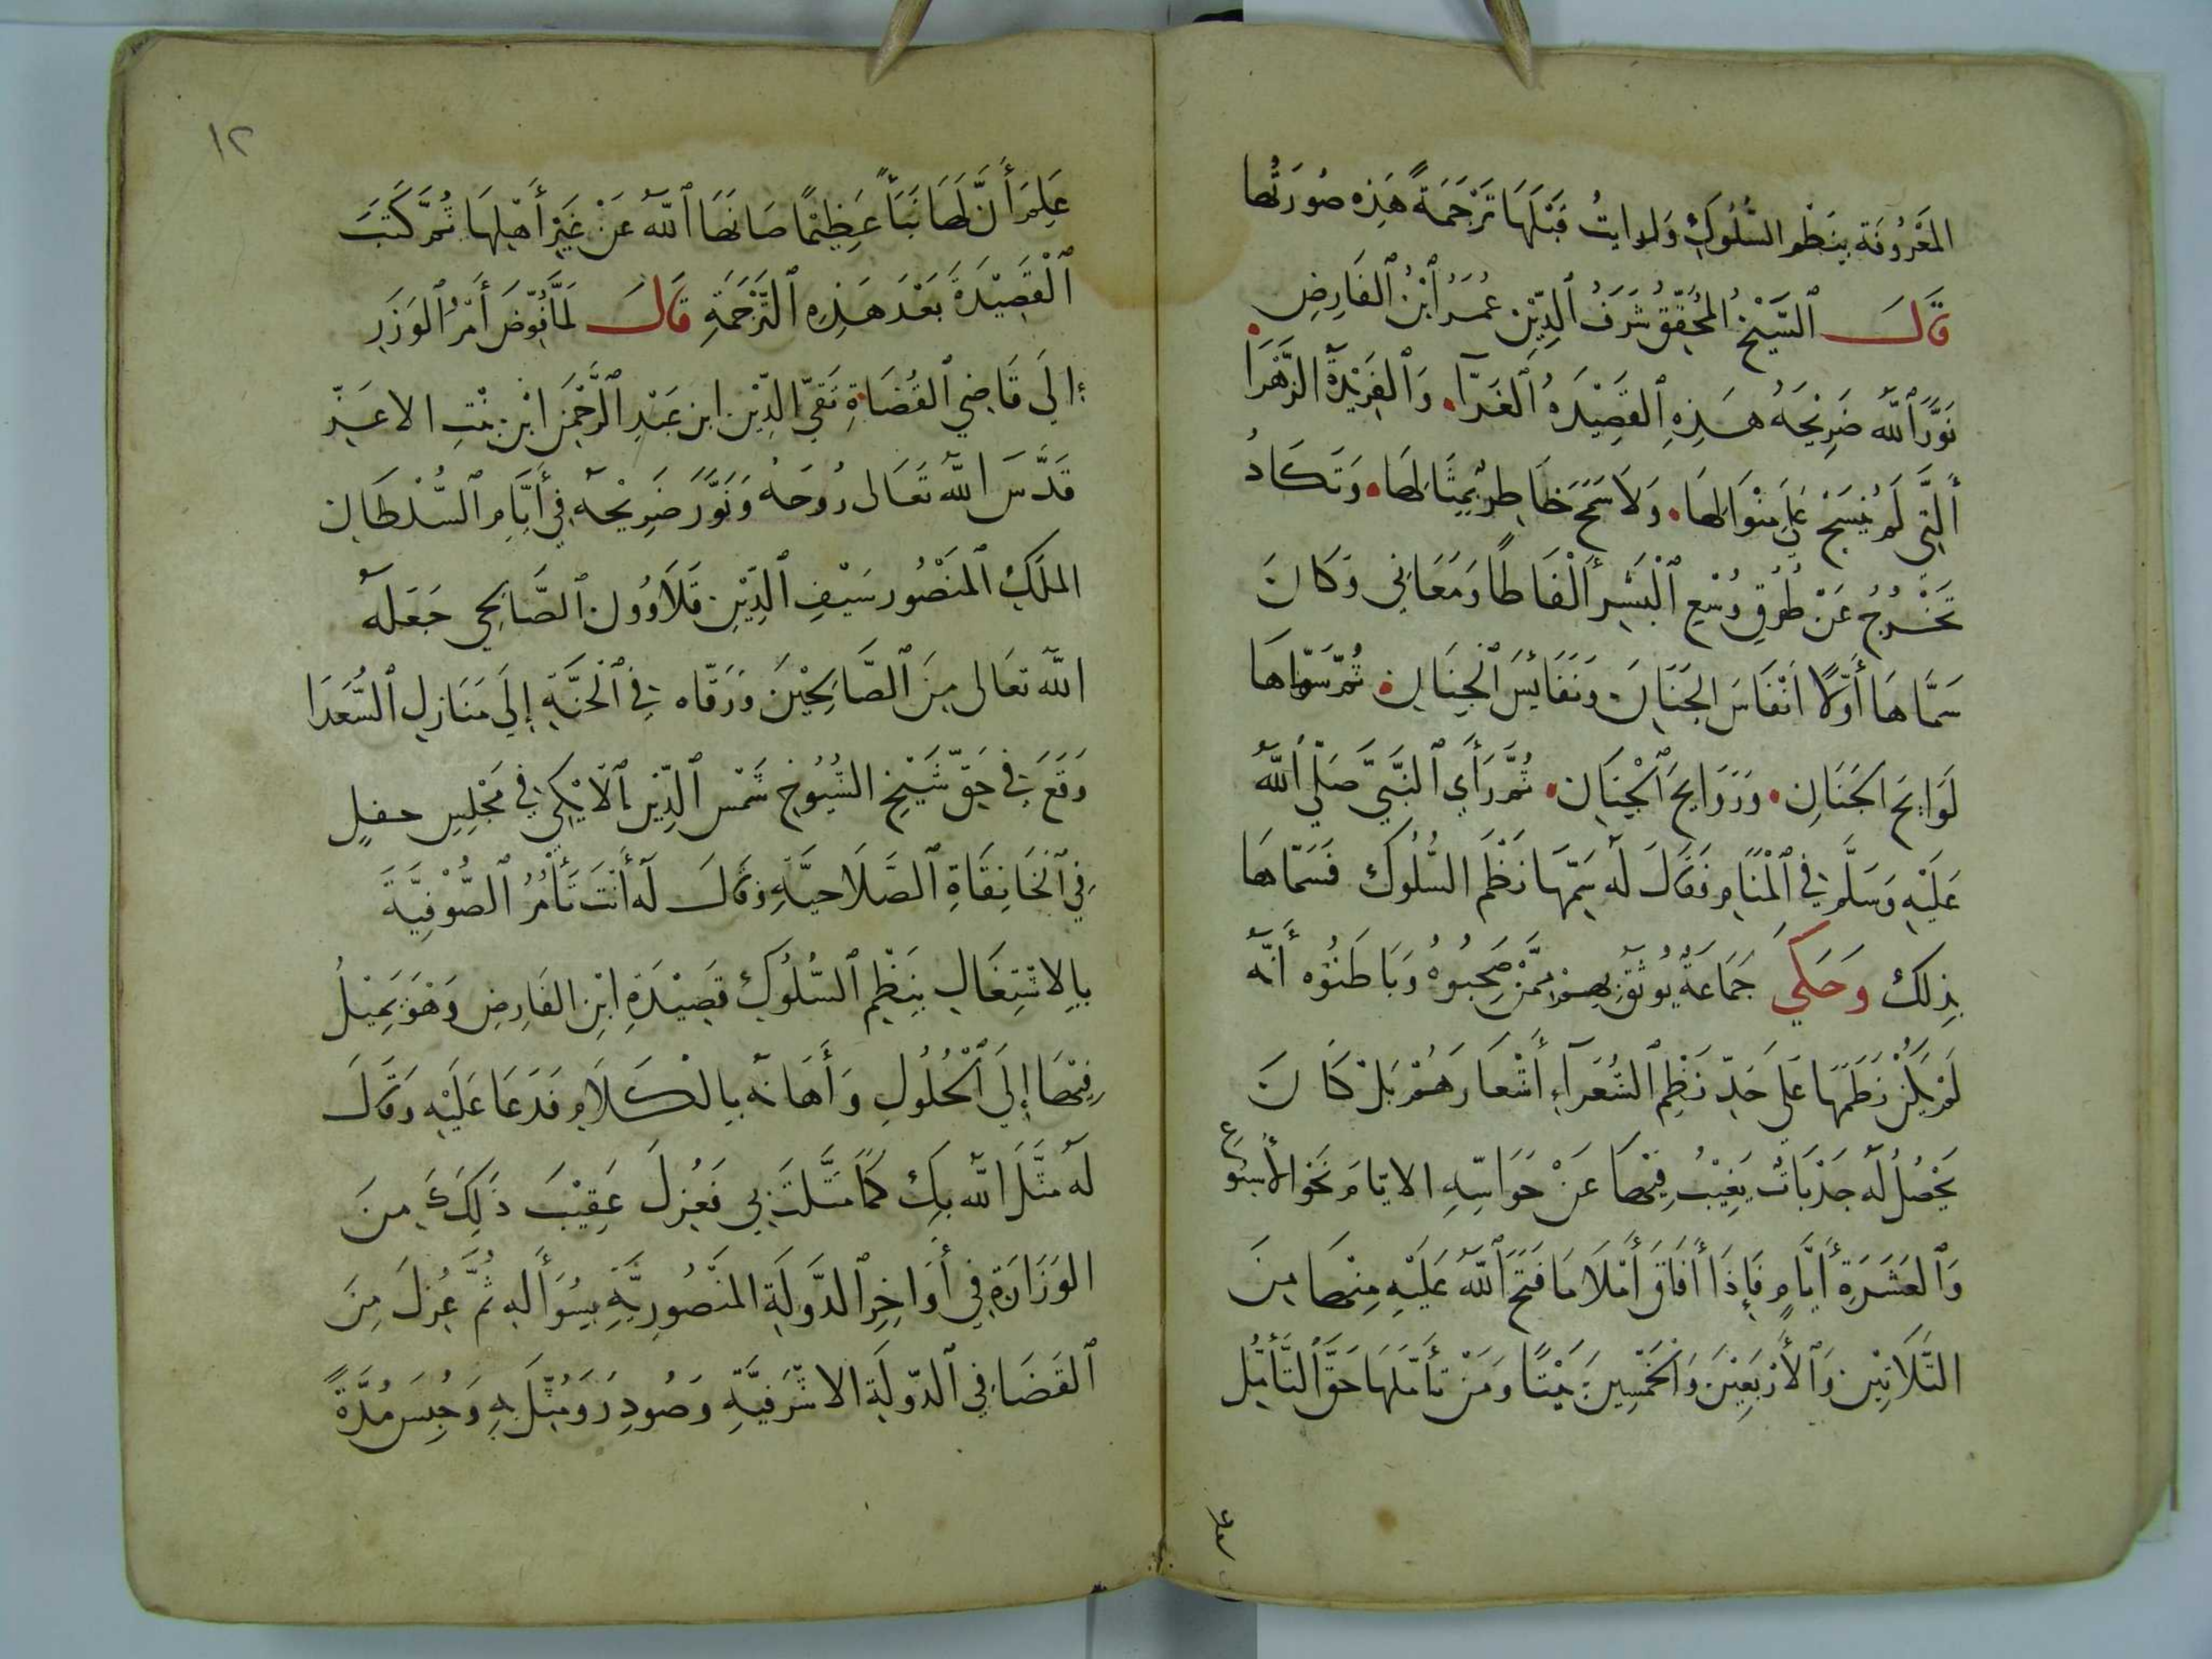 المَعْرُوفَة بِنَظْمِ السُّلُوكِ وَلوايتُ قَبْلَهَا تَرْجَمَةً هَذِه صُورَتُهَا
قَالَ ٱلشَّيْخُ ٱلمُحَقِّقُ شَرَفُ ٱلدِّيْن عُمَرُ ٱبْنُ ٱلفَارِضِ
نَوَّرَ ٱللّٰهُ ضَرِيْحَهُ هَذِهِ ٱلقَصِيْدَهُ ٱلغَرّآ وَٱلفَرِيْدَةُ الزَّهْرَا
ٱلَّتِي لَمْ يُنْسَجْ عَلَى مِنْوَالِهَا وَلَا سَمَحَ خَاطِرٌ بِمِثَالِهَا وَتَكَادُ
تَخْرُجُ عَنْ طُرُقِ وُسْعِ ٱلْبَشَرِ أَلْفَاظًا وَمَعَانِي وَكَانَ
سَمَّاهَا أَوَّلًا انْفَاسَ الجَنَانِ وَنَفَائِسَ ٱلْجِنَانِ ثُمَّ سَمّاهَا
لَوَايِحَ الجَنَانِ وَرَوَايِحَ ٱلْجِنَانِ ثُمَّ رَأَى ٱلنَّبِيَّ صَلَّى ٱللّٰهُ
عَلَيْهِ وَسَلَّمَ فِي ٱلْمَنَامِ فَقَالَ لَهُ سَمِّهَا نَظْمَ السُّلُوك فَسَمّاهَا
بِذلِك وَحَكَى جَمَاعَةٌ يُوثَقُ بِهِمْ مِمَّنْ صَحِبُوهُ وَبَاطَنُوه أَنَّهُ
لَمْ يَكُنْ نَظَمَهَا عَلَى حَدِّ نَظْمِ ٱلشُّعَرَآءِ أَشْعَارَهُمْ بَلْ كَانَ
يَحْصُلُ لَهُ جَذَبَاتٌ يَغِيْبُ فِيْهَا عَنْ حَوَاسِّهِ الايّامَ نَحْوَ الأُسْبُوع
وَٱلعَشَرَةِ أَيَّامٍ فَإِذَا أَفَاقَ أَمْلَا مَا فَتَحَ ٱللّٰهُ عَلَيْهِ مِنْهَا مِنَ
الثَّلَاثِيْنَ وَٱلأَرْبَعِيْنَ وَٱلْخَمْسِيْنَ بَيْتًا وَمَنْ تأَمَّلَهَا حَقَّ ٱلتَّأَمُّلِ
١٢
عَلِمَ أَنَّ لَهَا نَبَأً عَظِيْمًا صَانَهَا ٱللّٰهُ عَنْ غَيْرِ أَهْلِهَا ثُمَّ كَتَبَ
ٱلْقَصِيْدَةَ بَعْدَ هَذِهِ ٱلتَّرْجَمَةِ قَالَ لَمَّا فُوِّضَ أَمْرُ ٱلوَزَر
إِلَى قَاضِي ٱلقُضَاةِ تَقِيّ الدِّيْن ابن عَبْدِ ٱلرَّحْمَن ابْن بِنْتِ الاعَزِّ
قَدَّسَ اللّٰهُ تَعَالى رُوحَهُ وَنَوَّرَ ضَرِيْحَهُ فِي أَيَّامِ ٱلسُّلْطَانِ
الملَكِ ٱلمَنْصُور سَيْفِ ٱلدِّيْنِ قَلَاوُون ٱلصَّالِحِي جَعَلَهُ
اللّٰهُ تعَالى مِنَ ٱلصَّالِحِيْنَ وَرَقّاه فِي ٱلْجَنَّةِ إِلَى مَنَازِلِ ٱلسُّعَدَا
وَقَعَ فِي حَقّ شَيْخِ الشُّيُوخِ شَمْس ٱلدِّيْن ٱلايْكِي فِي مَجْلِسٍ حفلٍ
فِي ٱلْخَانِقَاةِ ٱلصَّلَاحيَّةِ وَقَالَ لَهُ أَنْتَ تَأْمُرُ ٱلصُّوْفِيَّةَ
بِالاشْتِغَالِ بِنَظْمِ ٱلسُّلُوكِ قَصِيْدَةِ ابْنِ الفَارِضِ وَهُوَ يَمِيْلُ
فِيْهَا إِلَى ٱلْحُلُولِ وَأَهَانَهُ بِالْكَلَامِ فَدَعَا عَلَيْهِ وَقَالَ
لَهُ مثَّلَ اللّٰهُ بِكَ كَمَا مَثَّلتَ بِي فَعُزِلَ عَقِيْبَ ذَلِكَ مِنَ
الوَزَارَةِ فِي أَوَاخِرِ ٱلدَّولَةِ المَنْصُورِيَّةِ بِسُؤَالِهِ ثُمَّ عُزِلَ مِنَ
ٱلقَضَا فِي ٱلدّولَةِ الاشْرَفِيَّةِ وَصُودِرَ وَمُثِّلَ بِهِ وَحُبِسَ مُدَّةً